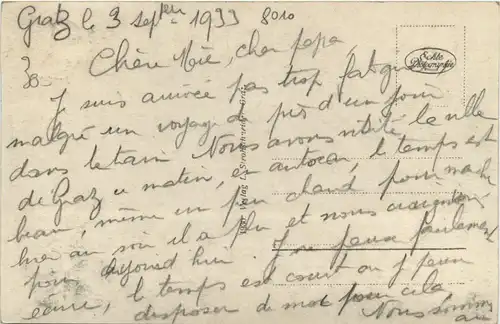 Graz le 3 septbre 1933 8010
Chère Mie, cher papa,
Echte Photographie
Je suis arrivée pas trop fatiguée
malgré un voyage de près d'un jour
dans le train Nous avons visité la ville
de Graz ce matin, en autocar, le temps est
beau, même un peu chaud pour marcher
hier au soir il a plu et nous craignions
pour aujourd'hui. Je ne peux seulement
écrire, le temps est court où je peux
disposer de moi pour cela
Nous sommes
au